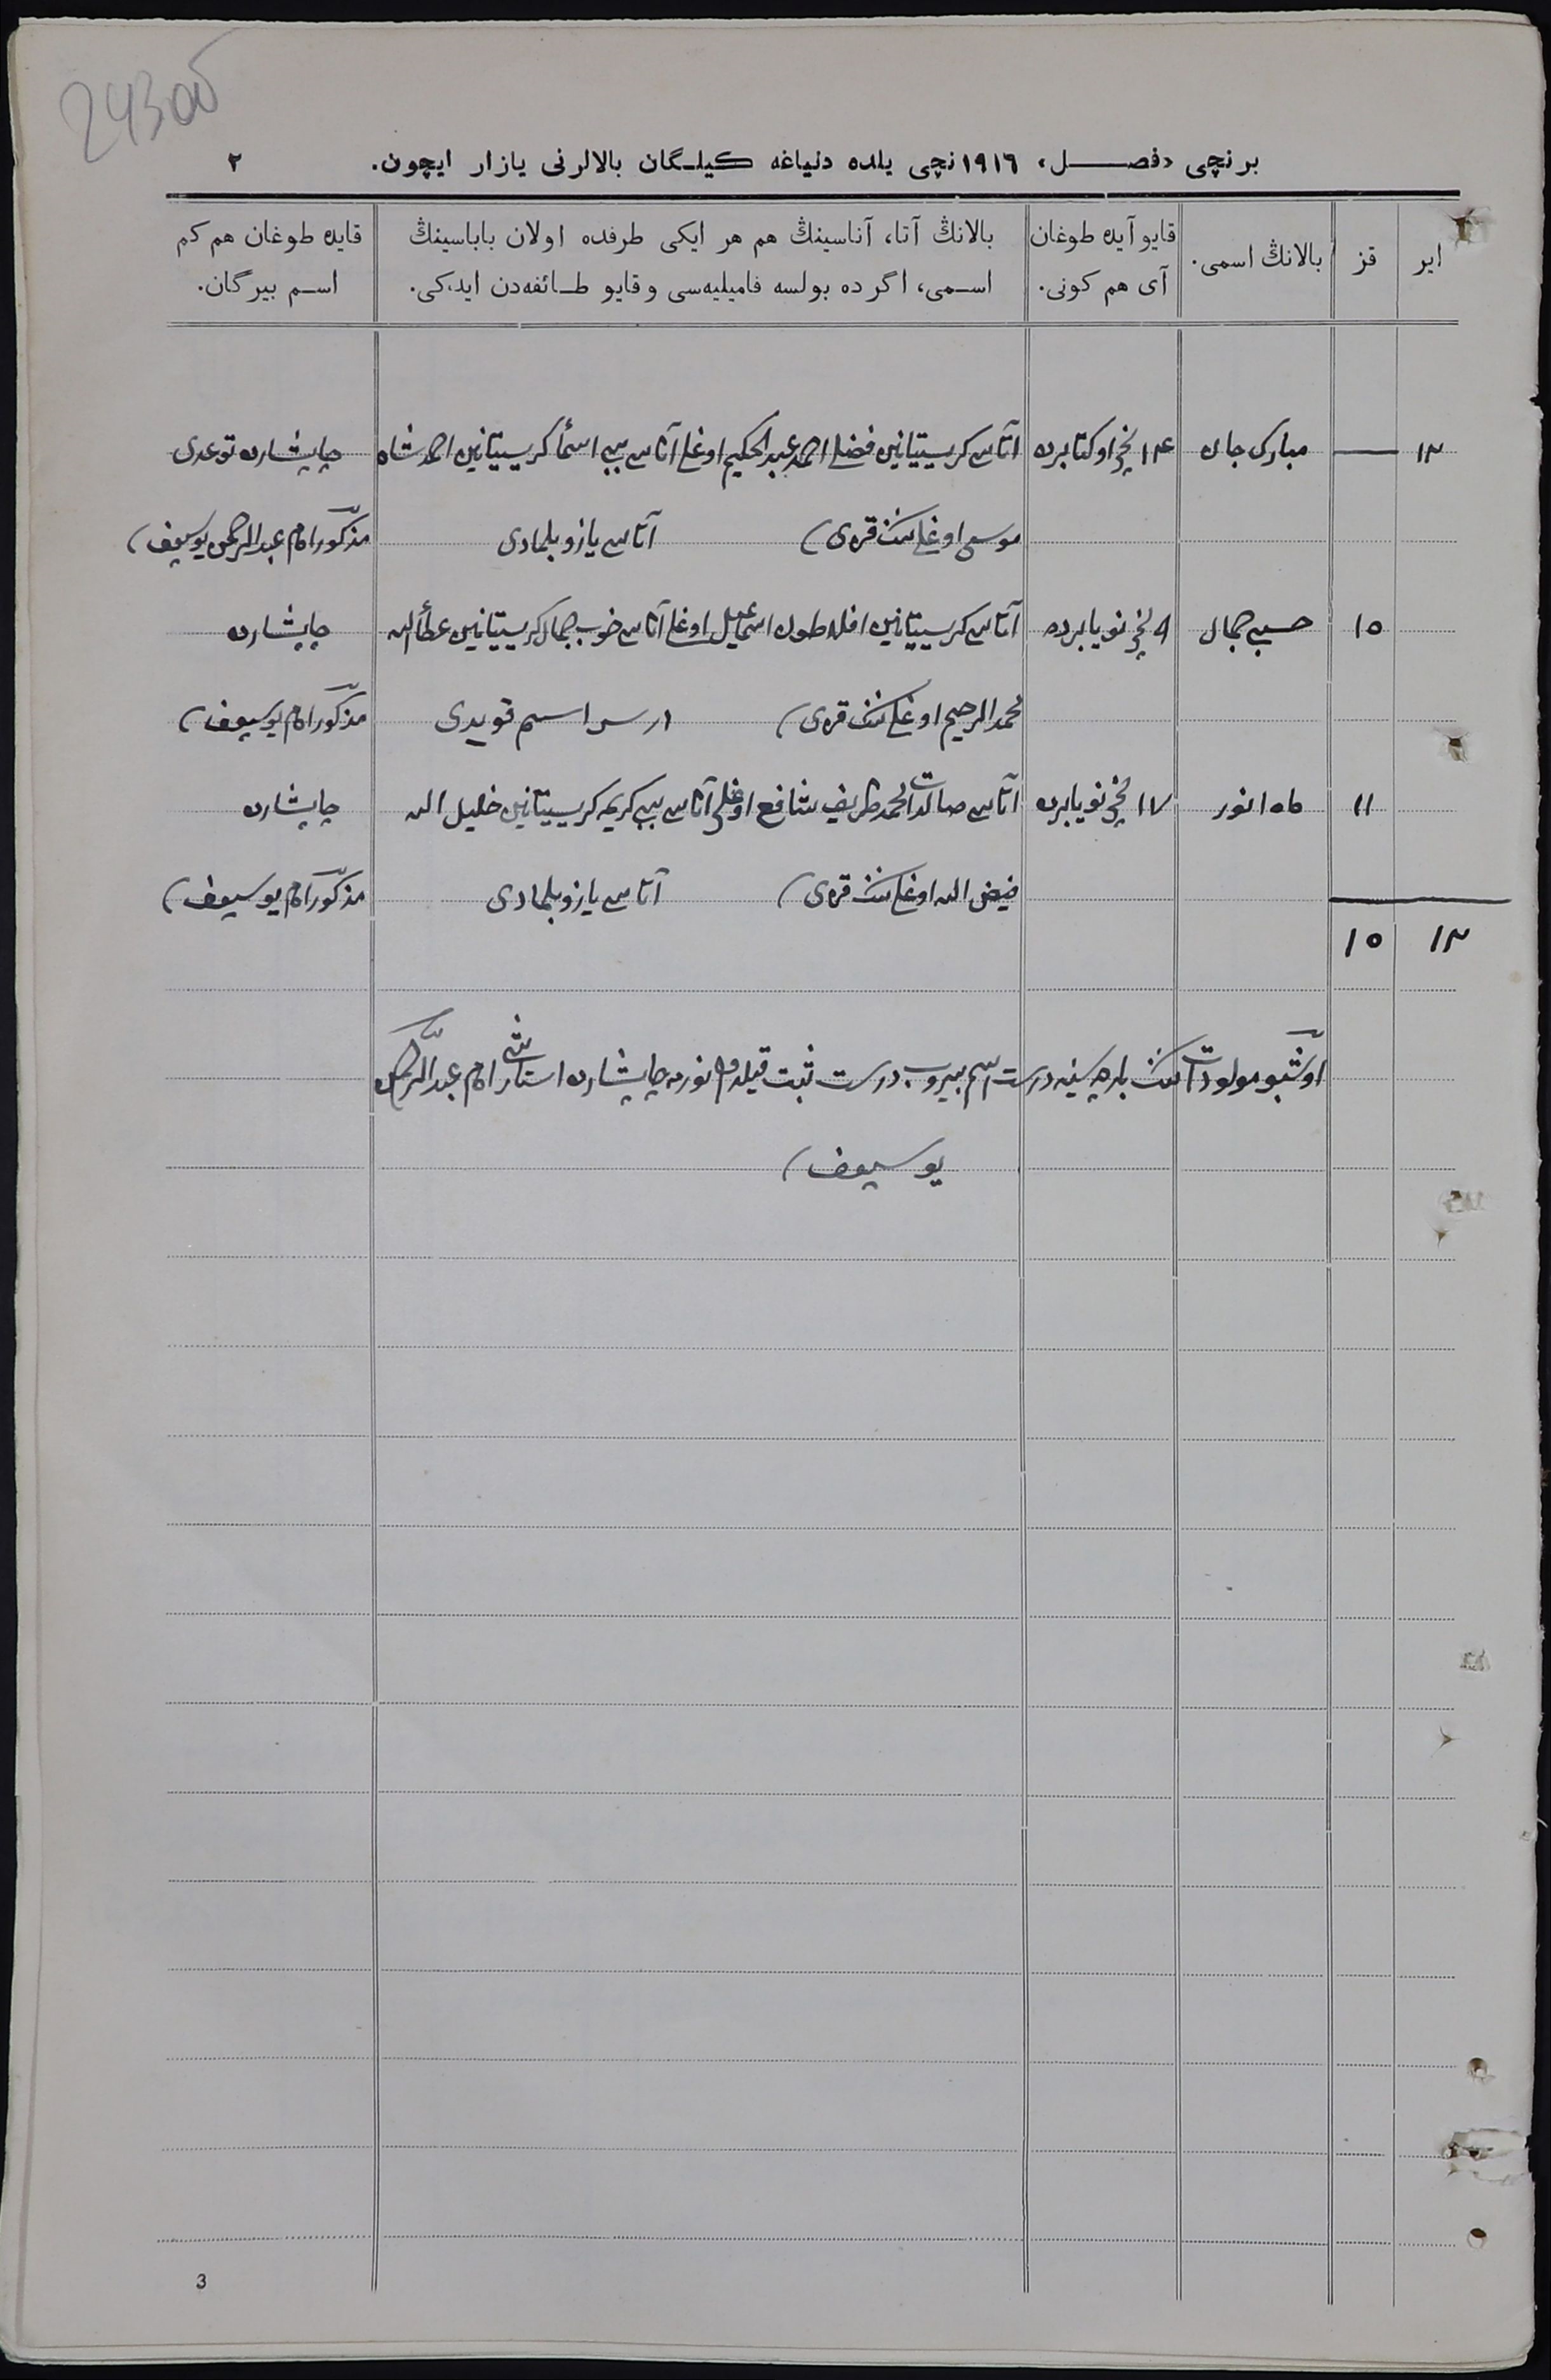 243об
برنچی «فصـــــل» ١٩١٦ نچی یلده دنیاغه کیلـگان بالالرنی یازار ایچون. ٢
ایر
قز
بالانڭ اسمی.
قایو آیده طوغان
آی هم کونی.
بالانڭ آتا، آناسینڭ هم هر ایکی طرفده اولان باباسینڭ
اسـمی، اگرده بولسه فامیلیه‌سی وقایو طـائفه‌دن ایدکی.
قایده طوغان هم کم
اسـم بیرگان.
١٣ — مبارک جان ١٤ نچی اوکتابرده آتاسی کریستیانین فضل احمد عبدالحکیم اوغلی آناسی بی بی اسما کریستیانین احمدشاه چاپشارده توغدی
موسی اوغلینڭ قزی) آتاسی یازو بلمادی مذکور امام عبدالرحمن یوسیوف)
١٥ حسبی جمال ٩ نچی نویابرده آتاسی کریستیانین افلاطون اسماعیل اوغلی آناسی خوب جمال کریستیانین عطأالله چاپشارده
محمدالرحیم اوغلینڭ قزی) اسم قویدی مذکور امام یوسیوف)
١١ ماه انور ١٧ نچی نویابرده آتاسی صالدات محمدظریف شافع اوغلی آناسی بی بی کریمه کریستیانین خلیل الله چاپشارده
فیض الله اوغلینڭ قزی) آتاسی یازو بلمادی مذکور امام یوسیوف)
١٣ ١٥
اوشبو مولوداتنڭ بارچه‌سینه درست اسم بیروب درست ثبت قیلدم چاپشارده امام عبدالرحمن
یوسیوف)
3